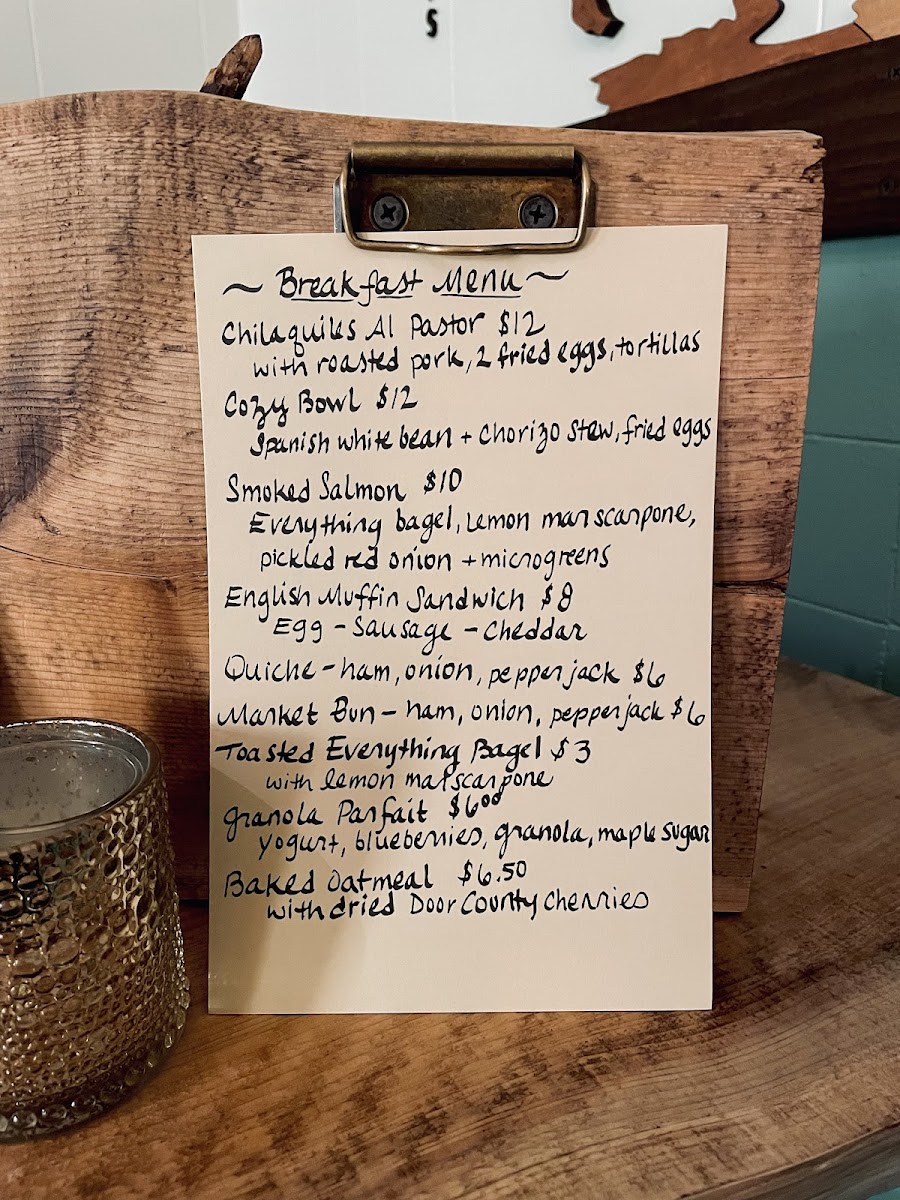 S
~ Breakfast Menu ~
Chilaquiles Al Pastor $12
with roasted pork, 2 fried eggs, tortillas
Cozy Bowl $12
Spanish white bean + Chorizo Stew, fried eggs
Smoked Salmon $10
Everything bagel, Lemon marscarpone,
pickled red onion + microgreens
English Muffin Sandwich $8
Egg - Sausage - Cheddar
Quiche - ham, onion, pepperjack $6
Market Bun - ham, onion, pepperjack $6
Toasted Everything Bagel $3
with lemon marscarpone
Granola Parfait $6.00
yogurt, blueberries, granola, maple sugar
Baked Oatmeal $6.50
with dried Door County Cherries